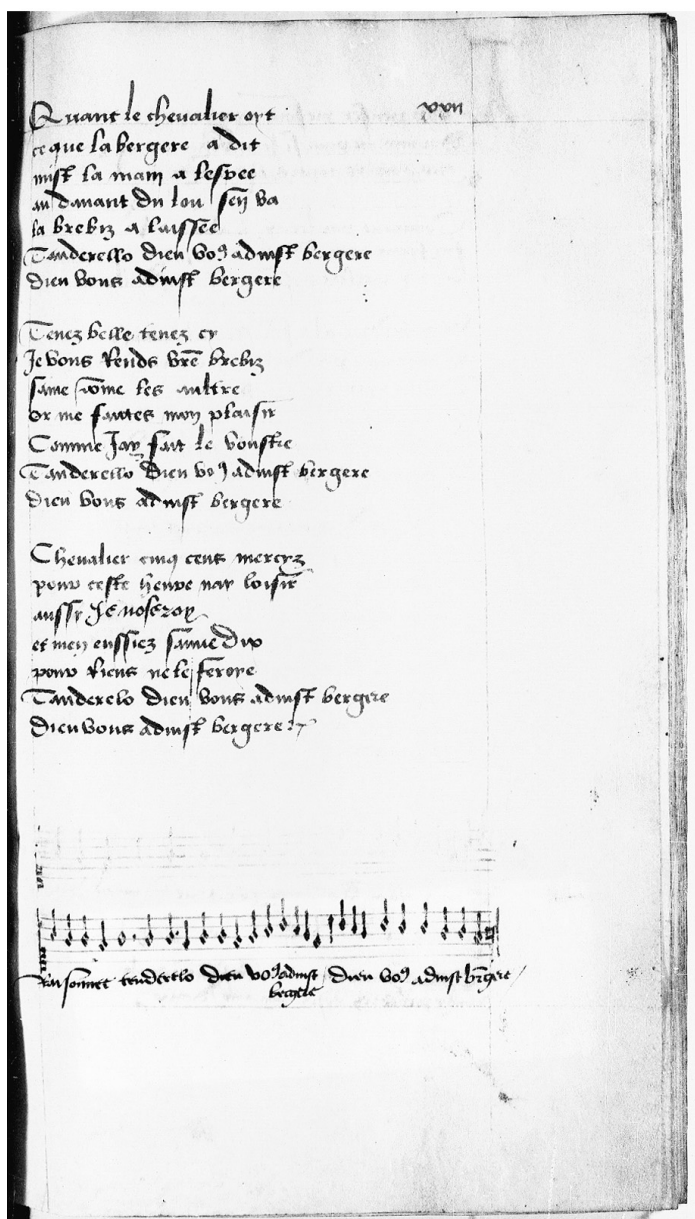 xxii
Quant le chevalier oyt
ce que la bergere a dit
mist la main a lespee
au davant du lou sen va
la brebiz a laissee
Tanderello dieu vo9 adinst bergere
dieu vous adinst bergere
Tenez belle tenez cy
Je vous Rends vre brebiz
saine come les aultre
or me faictes mon plaisir
Comme Jay fait le voustre
Tanderello Dieu vo9 adinst bergere
dieu vous adinst bergere
Chevalier cinq cens mercyz
pour ceste heure nay loisir
aussy Je noseroy
et men eussiez dix
pour Riens ne le feroye
Tanderelo dieu vous adinst bergere
Dieu vous adinst bergere
tenderelo dieu vo9 adinst dieu vo9 adinst brgere
bergere